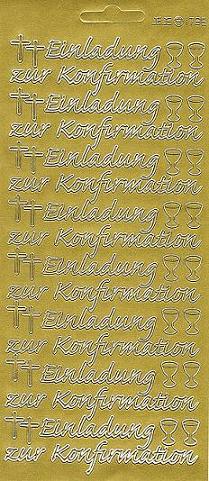 Einladung
zur Konfirmation
Einladung
zur Konfirmation
Einladung
zur Konfirmation
Einladung
zur Konfirmation
Einladung
zur Konfirmation
Einladung
zur Konfirmation
Einladung
zur Konfirmation
Einladung
zur Konfirmation